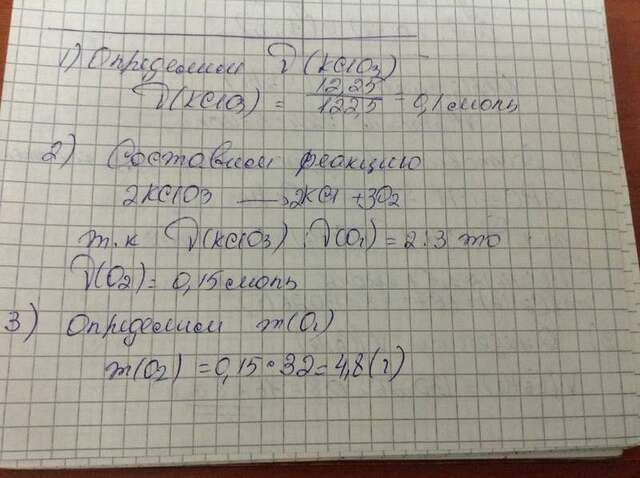 1) Определим ν(KClO3)
ν(KClO3) = 12,25/122,5 = 0,1 моль
2) Составим реакцию
2KClO3 → 2KCl + 3O2
т.к ν(KClO3) : ν(O2) = 2:3 то
ν(O2) = 0,15 моль
3) Определим m(O2)
m(O2) = 0,15 • 32 = 4,8 (г)